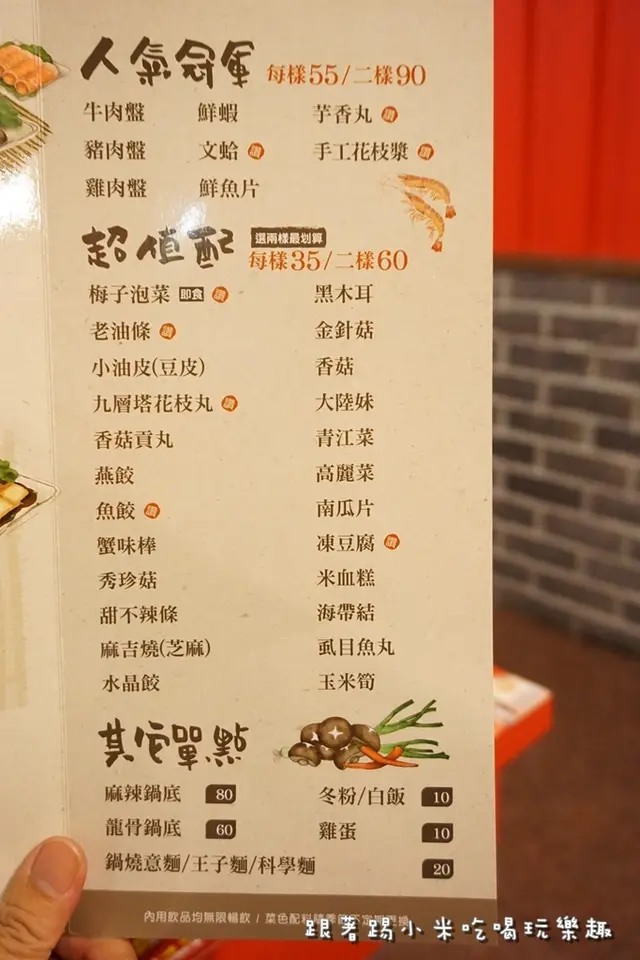 人氣冠軍 每樣55/二樣90
牛肉盤 鮮蝦 芋香丸
豬肉盤 文蛤 手工花枝漿
雞肉盤 鮮魚片
超值配 選兩樣最划算
每樣35/二樣60
梅子泡菜 即食 黑木耳
老油條 金針菇
小油皮(豆皮) 香菇
九層塔花枝丸 大陸妹
香菇貢丸 青江菜
燕餃 高麗菜
魚餃 南瓜片
蟹味棒 凍豆腐
秀珍菇 米血糕
甜不辣條 海帶結
麻吉燒(芝麻) 虱目魚丸
水晶餃 玉米筍
其它單點
麻辣鍋底 80 冬粉/白飯 10
龍骨鍋底 60 雞蛋 10
鍋燒意麵/王子麵/科學麵 20
內用飲品均無限暢飲 / 菜色配料隨季節不定期更換
跟著踢小米吃喝玩樂趣